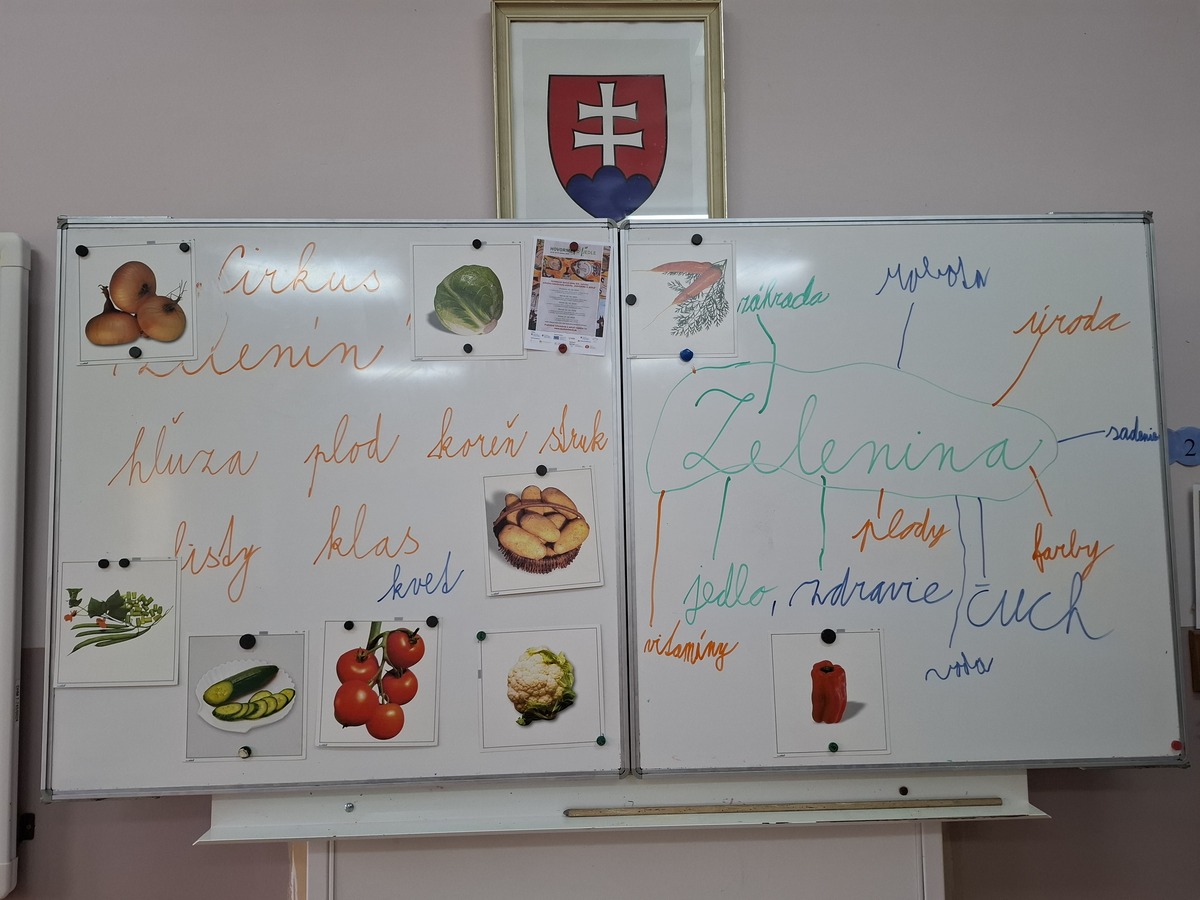 Cirkus
Zelenín
hľúza plod koreň struk
listy klas
kvet
záhrada
robota
úroda
Zelenina
sadenie
plody
farby
jedlo, zdravie čuch
vitamíny
voda
2